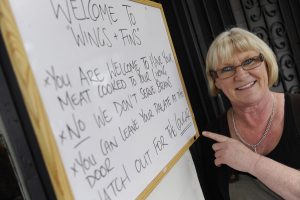 WELCOME TO
"WINGS + FINS"
* YOU ARE WELCOME TO HAVE YOUR
MEAT COOKED TO YOUR LIKING
* NO WE DON'T SERVE BRAINS
* YOU CAN LEAVE YOUR PALATE AT THE
DOOR
WATCH OUT FOR THE